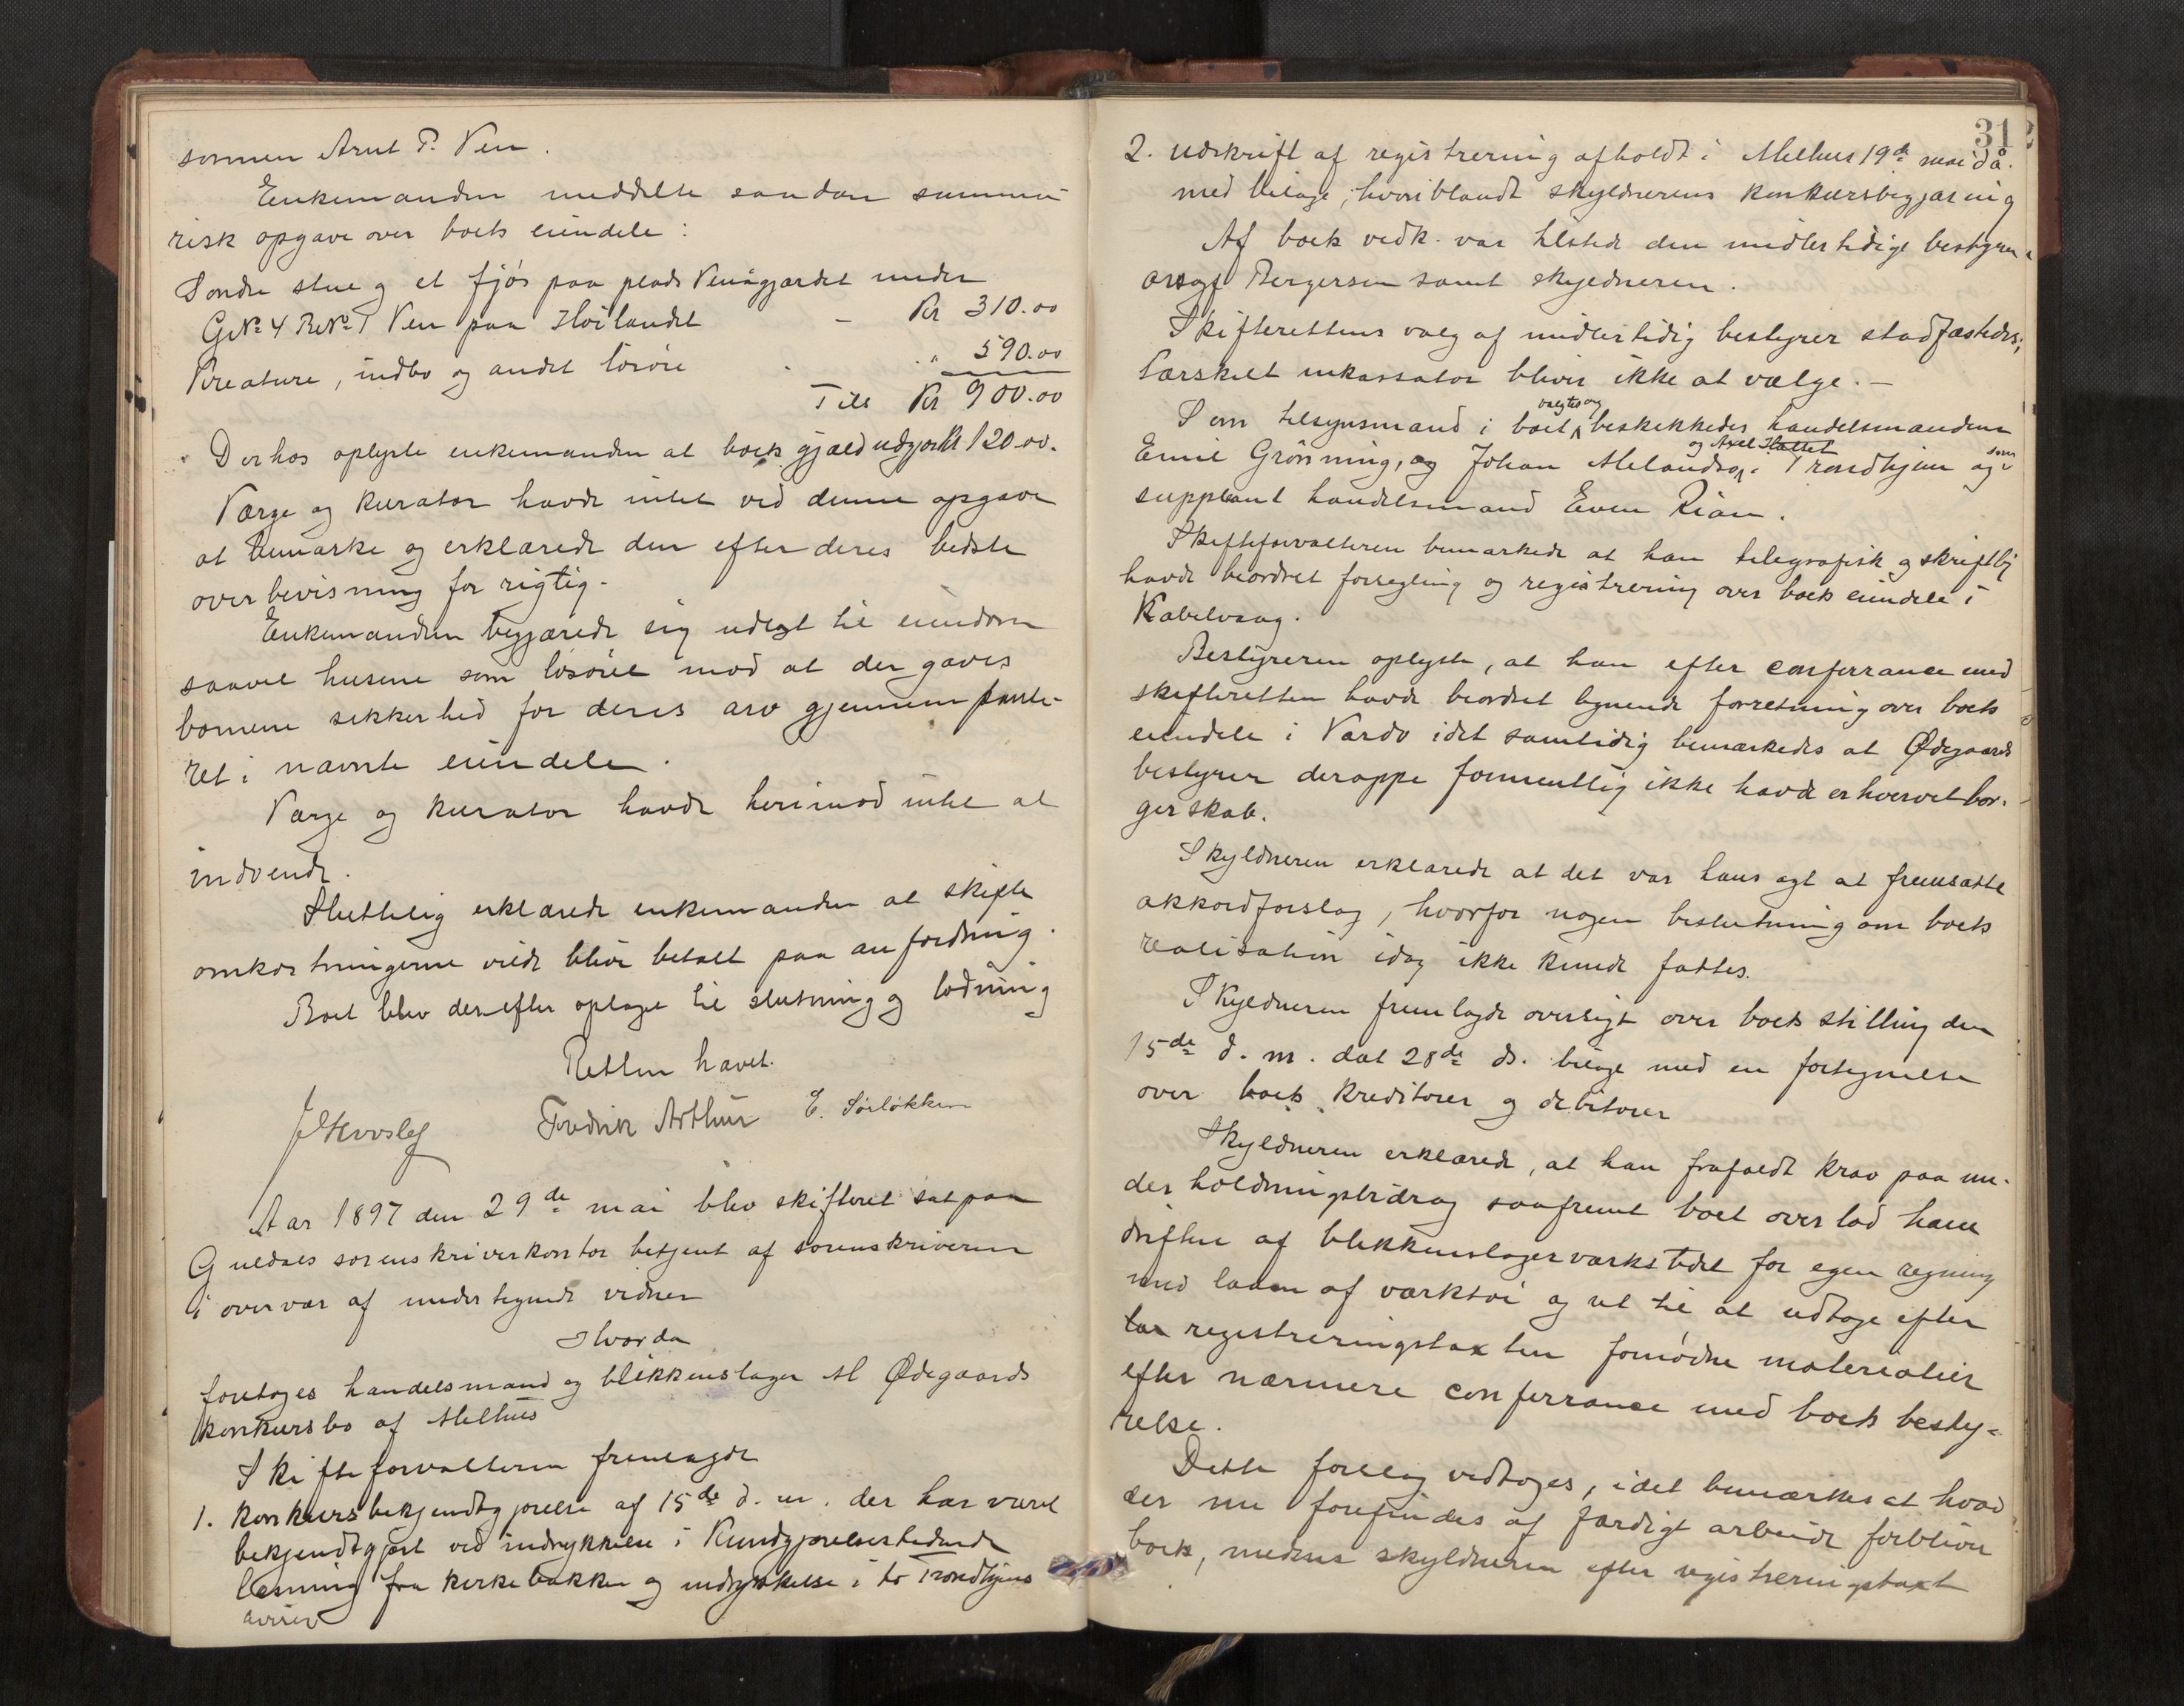 sønnen Arnt P. Ven.
Enkemanden meddelte saadan summa-
risk opgave over boets eiendele:
Søndre stue og et fjós paa plads Vensgjærdet under
GNo 4 BNo 1 Ven paa Høilandet - Kr 310.00
Kreature, indbo og andet løsøre . . " 590.00
Tils Kr 900.00
Derhos oplyste enkemanden at boets gjæld udgjør Kr 120.00.
Værge og kurator havde intet ved denne opgave
at bemærke og erklærede den efter deres bedste
overbevisning for rigtig.
Enkemanden begjærede sig udlagt til eiendom
saavel husene som løsøret mod at der gaves
børnene sikkerhed for deres arv gjennem pante-
ret i nævnte eiendele.
Værge og kurator havde herimod intet at
indvende.
Sluttelig erklærede enkemanden at skifte
omkostningerne vilde blive betalt paa anfordring.
Boet blev derefter optaget til slutning og lodning
Retten hævet.
Fredrik Arthur E. Sørløkken
Aar 1897 den 29de mai blev skifteret sat paa
Guldals sorenskriverkontor betjent af sorenskriveren
i overvær af undertegnede vidner
Hvorda
foretoges handelsmand og blikkenslager M Ødegaards
konkursbo af Melhus
Skifteforvalteren fremlagde
1. Konkursbekjendtgjørelse af 15de d. m. der har været
bekjendtgjort ved indrykkelse i Kundgjørelsestidende
læsning fra kirkebakken og indrykkelse i to Trondhjems
aviser
31
2. Udskrift af registrering afholdt i Melhus 19de mai d å.
med bilage, hvoriblandt skyldnerens konkursbegjæring
Af boets vedk. var tilstede den midlertidige bestyrer
orsagf Bergersen samt skyldneren.
Skifterettens valg af midlertidig bestyrer stadfæstedes;
Særskilt inkassator bliver ikke at vælge. -
valgtes og
Som tilsynsmænd i boet beskikkedes handelsmændene
og Axel Hattet som
Emil Grønning, og Johan Melandsø i Trondhjem og
suppleant handelsmand Even Rian.
Skifteforvalteren bemærkede at han telegrafisk og skriftlig
havde beordret forsegling og registrering over boets eiendele i
Kabelvaag.
Bestyreren oplyste, at han efter conferrance med
skifteretten havde beordret lignende forretning over boets
eiendele i Vardø idet samtidig bemærkedes at Ødegaards
bestyrer deroppe formentlig ikke havde erhvervet bor-
gerskab.
Skyldneren erklærede at det var hans agt at fremsætte
akkordforslag, hvorfor nogen beslutning om boets
realisation idag ikke kunde fattes.
Skyldneren fremlagde oversigt over boets stilling den
15de d. m. dat 28de ds. bilage med en fortegnelse
over boets kreditorer og debitorer
Skyldneren erklærede, at han frafaldt krav paa un-
derholdningsbidrag saafremt boet overlod ham
driften af blikkenslagerværkstedet for egen regning
med laaen af værktøi og ret til at udtage efter
registreringstaxten fornødne materialier
efter nærmere conferrance med boets besty-
relse.
Dette forslag vedtoges, idet bemærkes at hvad
der nu forefindes af færdigt arbeide forbliver
boets, medens skyldneren efter registreringstaxt